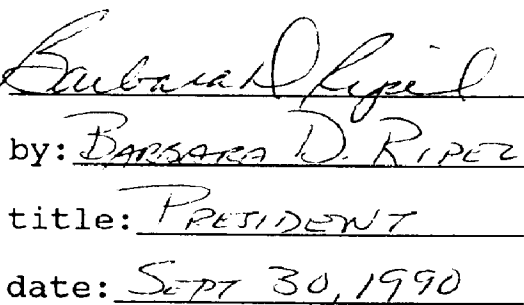 Barbara D Ripel
by: BARBARA D. RIPEL
title: PRESIDENT
date: SEPT 30, 1990